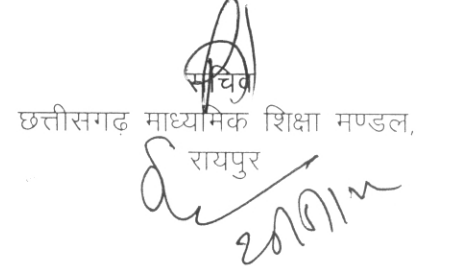 सचिव
छत्तीसगढ़ माध्यमिक शिक्षा मण्डल,
रायपुर